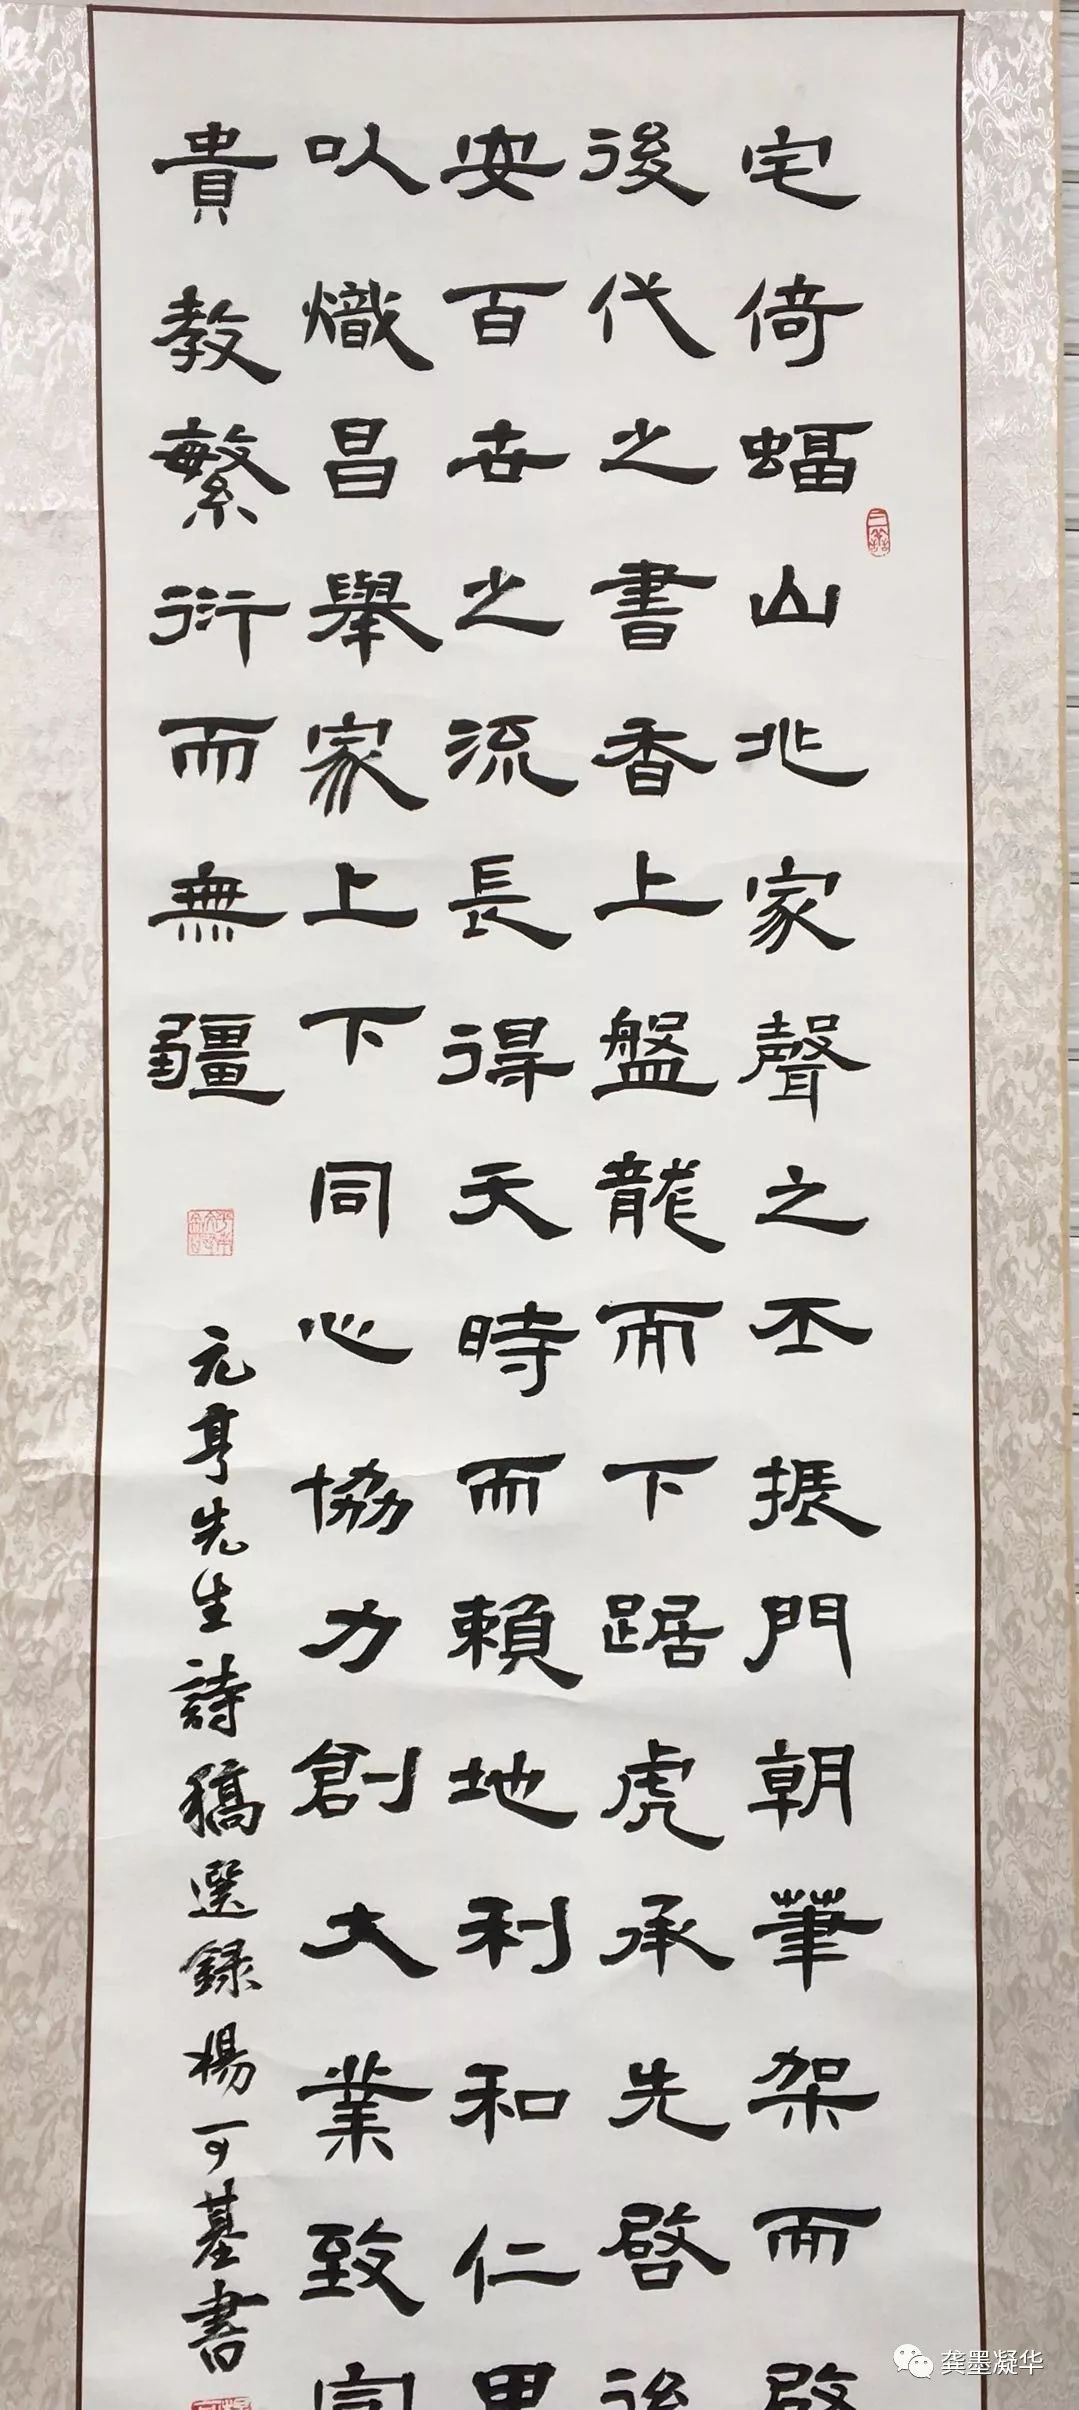 宅倚蝠山兆家聲之丕振門朝筆架而啟
後代之書香上盤龍而下踞虎承先啓後
安百世之流長得天時而賴地利和仁里
以熾昌舉家上下同心協力創大業致富
貴教繁衍而無疆
元亨先生詩稿選錄楊可基書
龚墨凝华